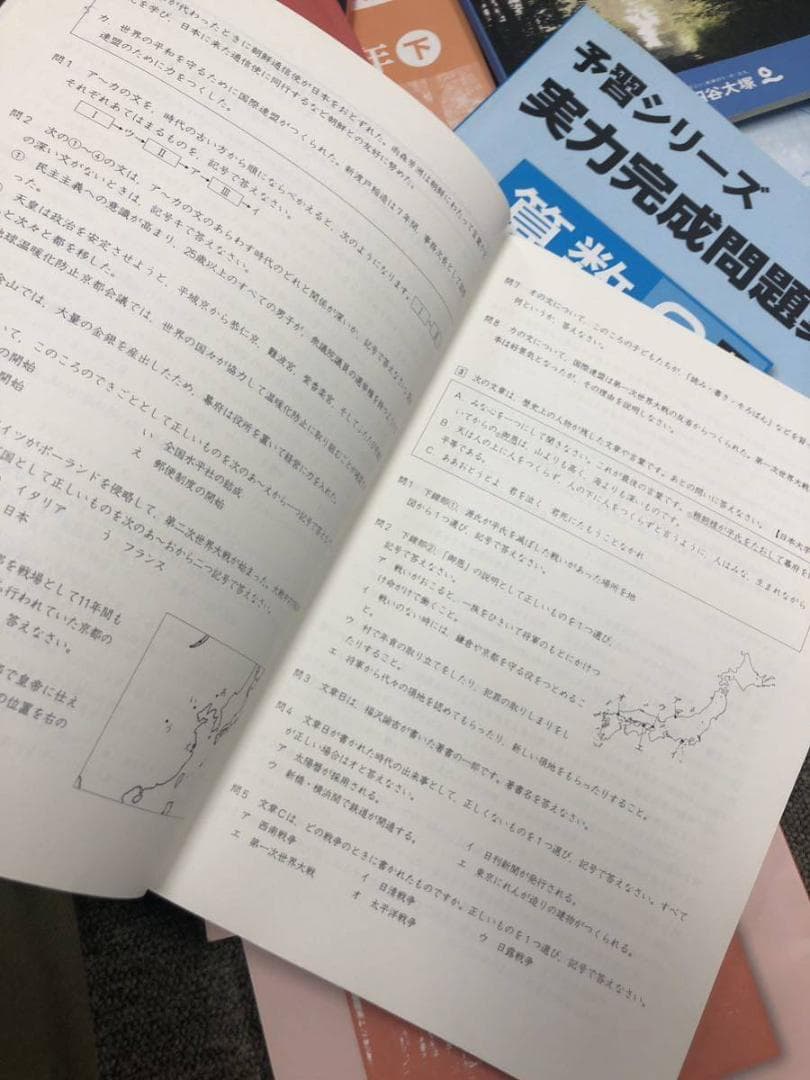 が代わったときに朝鮮通信使が日本をおとずれた。雨森芳洲は朝鮮にわたって
を学び、日本に来た通信使に同行するなど朝鮮との友好に努めた。
カ 世界の平和を守るために国際連盟がつくられた。新渡戸稲造は7年間、事務次長として
連盟のために力をつくした。
問1 ア〜カの文を、時代の古い方から順にならべかえると、次のようになります。
それぞれあてはまるものを、記号で答えなさい。
Ⅰ→ウ→Ⅱ→ア→Ⅲ→イ
問2 次の①〜④の文は、ア〜カの文のあらわす時代のどれと関係が深いか、記号で答えなさい。
の深い文がないときは、記号キで答えなさい。
① 民主主義への意識が高まり、25歳以上のすべての男子が、衆議院議員の選挙権を持つ
った。
天皇は政治を安定させようと、平城京から恭仁京、難波宮、紫香楽宮、そして
と次々と都を移した。
地球温暖化防止京都会議では、世界の国々が協力して温暖化防止に取り組むことが
金山では、大量の金銀を産出したため、幕府は役所を置いて経営に力を入れた
いて、このころのできごととして正しいものを次のあ〜えから一つ記号で答え
の開始
い 全国水平社の結成
開始
え 郵便制度の開始
イツがポーランドを侵略して、第二次世界大戦が始まった。
国として正しいものを次のあ〜おから二つ記号で答えなさい。
イタリア
う フランス
日本
を戦場として11年間も
行われていた京都の
答えなさい。
で皇帝に仕え
の位置を右の
う
問7 オの文について、このころの子どもたちが、「読み・書き・そろばん」などを
何というか、答えなさい。
問8 カの文について、国際連盟は第一次世界大戦の反省からつくられた。第一次世界大戦
本は好景気となったが、その理由を説明しなさい。
3 次の文章は、歴史上の人物が残した文章や言葉です。あとの問いに答えなさい。
【日本大学
A みな心を一つにして聞きなさい。これが最後の言葉です。①頼朝様が平氏をたおして幕府を
いてからの②御恩は、山よりも高く、海よりも深いものです。
B 天は人の上に人をつくらず、人の下に人をつくらずと言うように、人はみな、生まれながら
平等である。
C ああおとうとよ 君を泣く 君死にたもうことなかれ
問1 下線部①、源氏が平氏を滅ぼした戦いがあった場所を地
図から1つ選び、記号で答えなさい。
問2 下線部②、「御恩」の説明として正しいものを1つ選び、
記号で答えなさい。
ア 戦いがおこると、一族をひきいて将軍のもとにかけつ
け命がけで働くこと。
イ 戦いのない時には、鎌倉や京都を守る役をつとめるこ
と。
ウ 村で年貢の取り立てをしたり、犯罪の取りしまりをし
たりすること。
エ 将軍から代々の領地を認めてもらったり、新しい領地をもらったりすること。
問3 文章Bは、福沢諭吉が書いた著書の一部です。著書名を答えなさい。
問4 文章Bが書かれた時代の出来事として、正しくないものを1つ選び、記号で答えなさい。すべて
が正しい場合はオと答えなさい。
ア 太陽暦が採用される。
イ 日刊新聞が発行される。
ウ 新橋・横浜間で鉄道が開通する。
エ 東京にれんが造りの建物がつくられる。
問5 文章Cは、どの戦争のときに書かれたものですか。正しいものを1つ選び、記号で答えなさい。
ア 西南戦争
イ 日清戦争
ウ 日露戦争
エ 第一次世界大戦
オ 太平洋戦争
年 下
四谷大塚
予習シリーズ
実力完成問題
算数